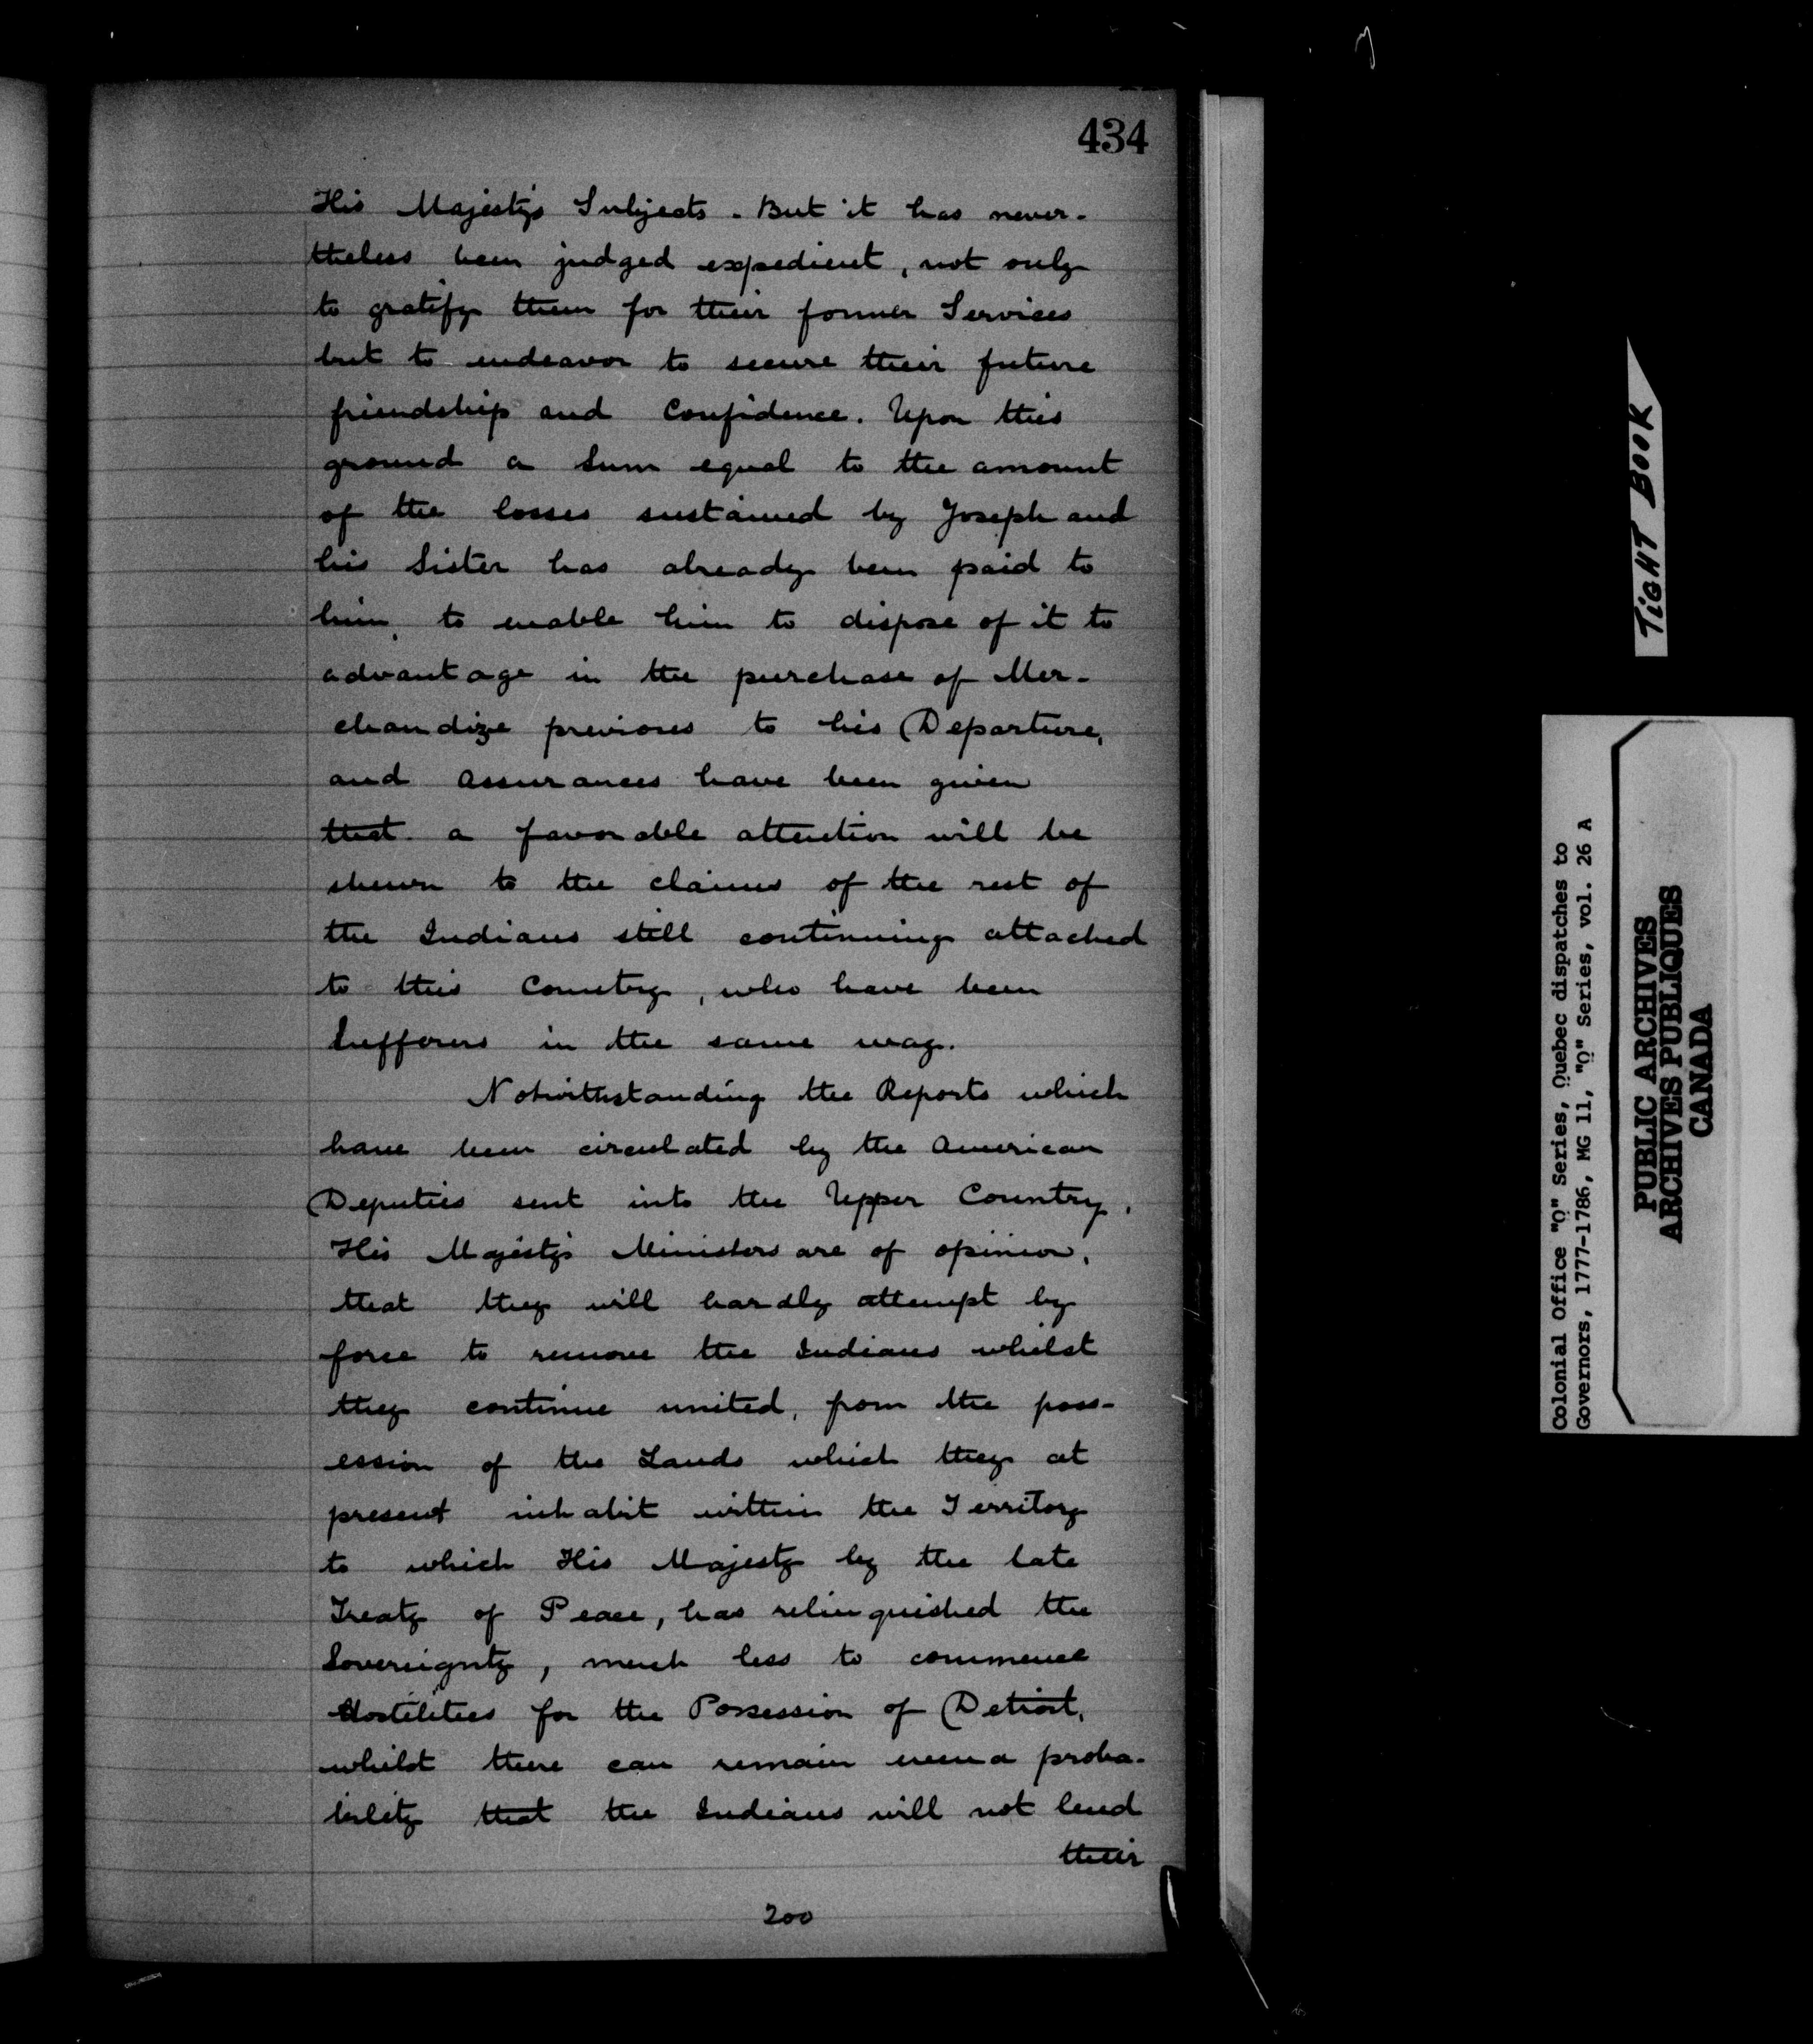 434
His Majesty's Subjects. But it has never-
theless been judged expedient, not only
to gratify them for their former Services
but to endeavor to secure their future
friendship and Confidence. Upon this
ground a Sum equal to the amount
of the losses sustained by Joseph and
his Sister has already been paid to
him, to enable him to dispose of it to
advantage in the purchase of Mer-
chandize previous to his Departure,
and assurances have been given
that a favorable attention will be
shewn to the claims of the rest of
the Indians still continuing attached
to this Country, who have been
Sufferers in the same way.
Notwithstanding the Reports which
have been circulated by the American
Deputies sent into the Upper Country,
His Majesty's Ministers are of opinion,
that they will hardly attempt by
force to remove the Indians whilst
they continue united, from the poss-
ession of the Lands which they at
present inhabit within the Territory
to which His Majesty by the late
Treaty of Peace, has relinquished the
Sovereignty, much less to commence
Hostilities for the Possession of Detroit,
whilst there can remain even a proba-
bility that the Indians will not lend
their
200
TIGHT BOOK
Colonial Office "Q" Series, Quebec dispatches to
Governors, 1777-1786, MG 11, "Q" Series, vol. 26 A
PUBLIC ARCHIVES
ARCHIVES PUBLIQUES
CANADA